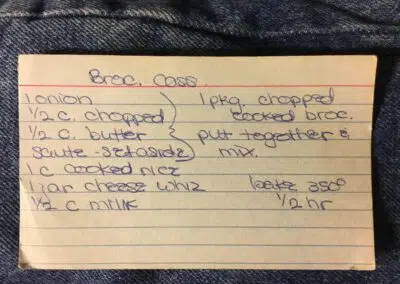 Broc. Cass.
1 onion
1/2 c. chopped
1/2 c. butter
saute - set aside
1 c cooked rice
1 jar cheese whiz
1/2 c milk
1 pkg. chopped
cooked broc.
put together &
mix.
bake 350°
1/2 hr